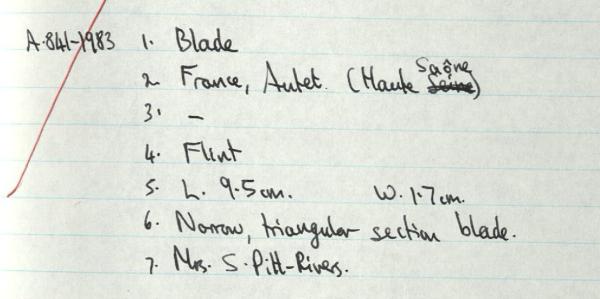 A.841-1983 1. Blade
2 France, Autet. (Haute Saône Seine)
3. –
4. Flint
5. L. 9.5cm. W. 1.7cm.
6. Narrow, triangular section blade.
7. Mrs. S. Pitt-Rivers.